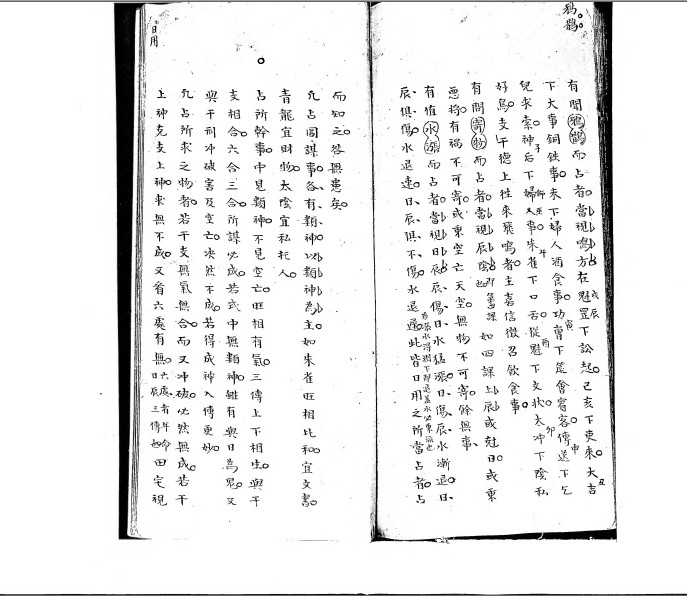 鴉鵲
有聞鴉鵲而占者當視鳴方在魁罡下訟起己亥下吏來大吉
下大事銅鉄事未下婦人酒食事功曹下產會賓客傳送下乞
兒求索神后下婦人事朱雀下口舌從魁下文狀太冲下陰私
好鳥支午德上往來飛鳴者主喜信徵召飲食事
有問寄物而占者當視辰陰 如四課上辰或尅日或乘
惡將有禍不可寄或東空亡天空無物不可寄餘無事
有值水漲而占者當視日辰辰傷日水猛漲日傷辰水漸退日
辰俱傷水退速日辰俱不傷水退遲此皆日用之所當占者占
而知之咎無患矣
凡占圖謀事各有類神以類神為主如朱雀旺相比和宜文書
青龍宜財物太陰宜私托人
占所幹事中見類神不見空亡旺相有氣三傳上下相生與干
支相合六合三合所謀必成若式中無類神雖有與日為鬼又
與干刑冲破害及空亡決然不成若得成神入傳更妙
凡占所求之物者若干支無氣無合而又冲破必然無成若干
上神克支上神求無不成又看六處有無 田宅視
日用